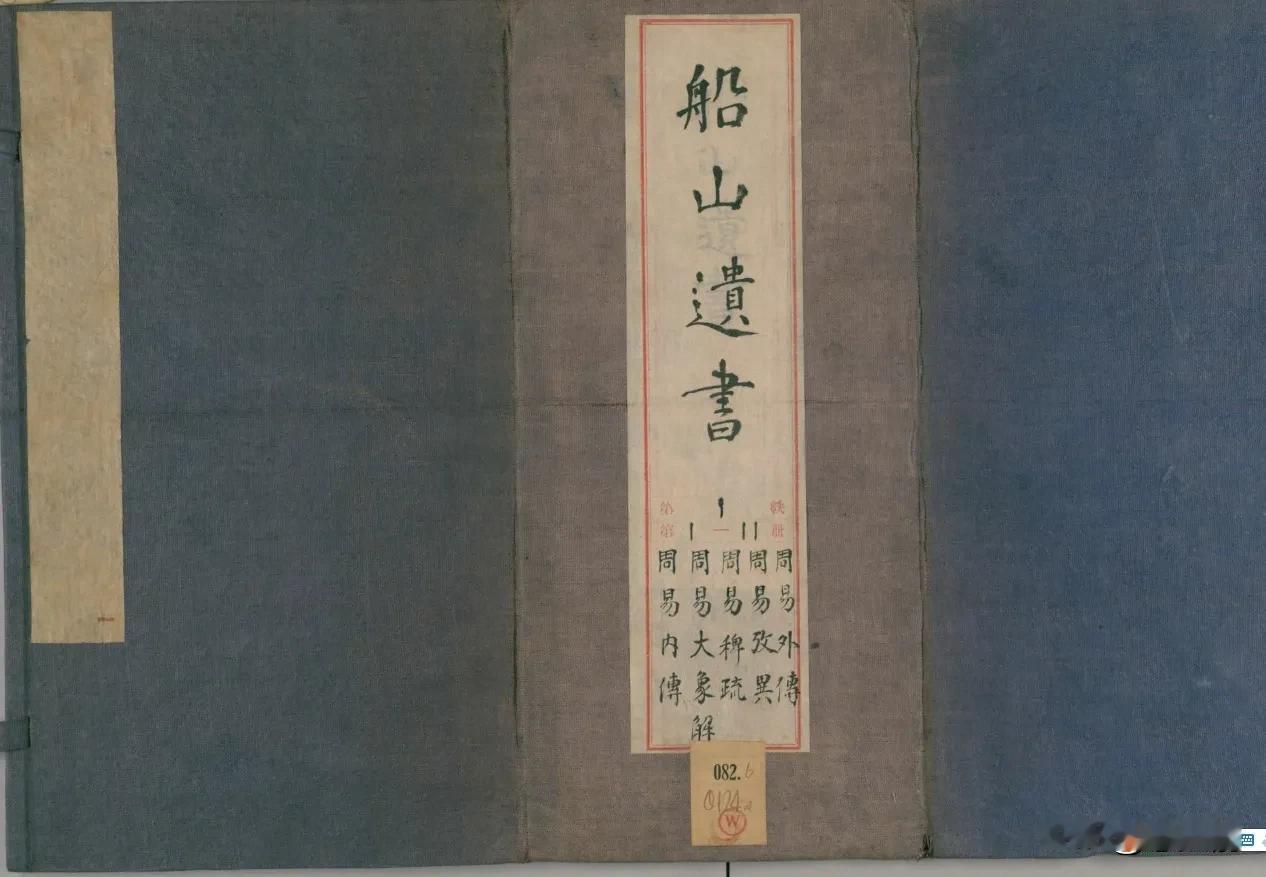 船山遺書
第1帙
第1一11册
周易内傳
周易大象解
周易稗疏
周易攷異
周易外傳
082.6
W